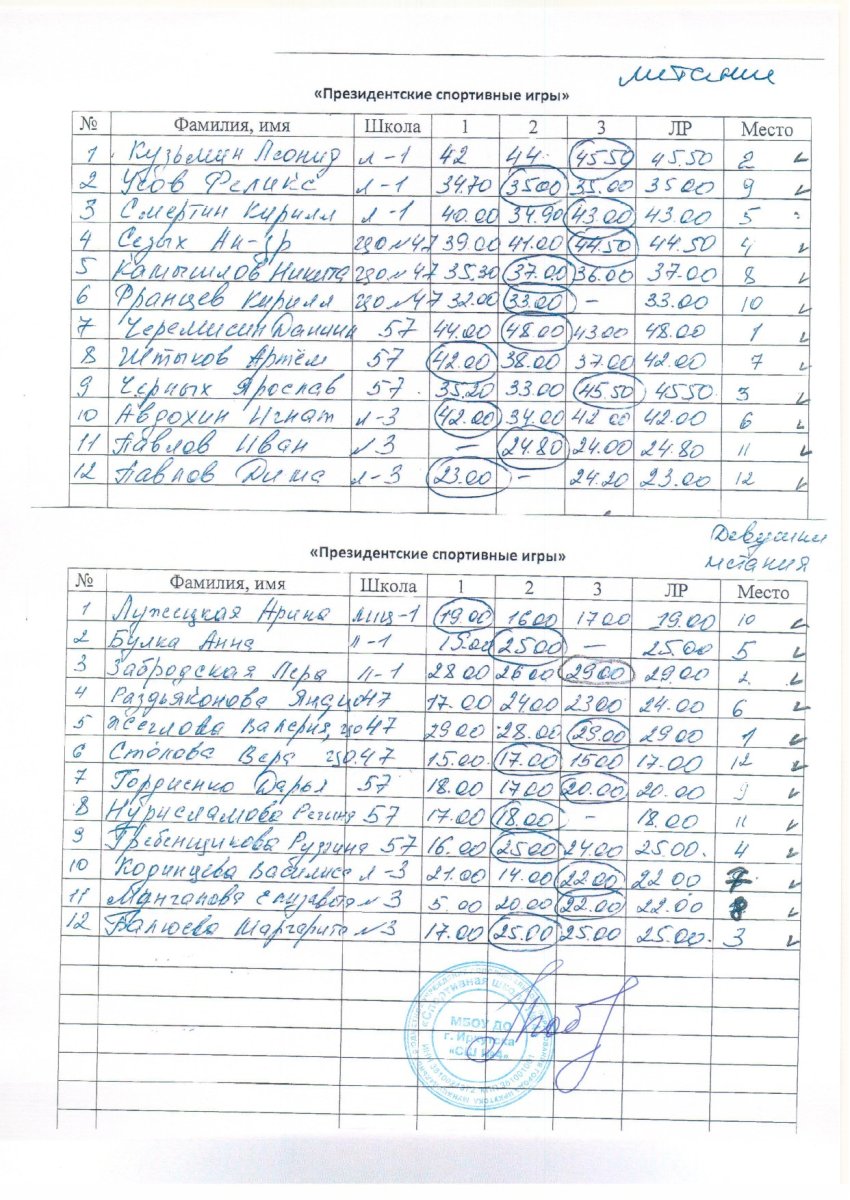 метание
«Президентские спортивные игры»
№ Фамилия, имя Школа 1 2 3 ЛР Место
1 Кузьмин Леонид л-1 42 44 45.50 45.50 2
2 Усов Феликс л-1 34.70 35.00 35.00 35.00 9
3 Смертин Кирилл л-1 40.00 34.90 43.00 43.00 5
4 Седых Ан-др ЦО №47 39.00 41.00 44.50 44.50 4
5 Камышлов Никита ЦО №47 35.30 37.00 36.00 37.00 8
6 Францев Кирилл ЦО №47 32.00 33.00 – 33.00 10
7 Черемисин Даниил 57 44.00 48.00 43.00 48.00 1
8 Штыков Артём 57 42.00 38.00 37.00 42.00 7
9 Черных Ярослав 57 35.20 33.00 45.50 45.50 3
10 Авдохин Игнат л-3 42.00 34.00 42.00 42.00 6
11 Павлов Иван л 3 – 24.80 24.00 24.80 11
12 Павлов Дима л-3 23.00 – 24.20 23.00 12
Девушки
метания
«Президентские спортивные игры»
№ Фамилия, имя Школа 1 2 3 ЛР Место
1 Лужецкая Арина лиц-1 19.00 16.00 17.00 19.00 10
2 Булка Анна Л-1 15.00 25.00 – 25.00 5
3 Забродская Лера Л-1 28.00 26.00 29.00 29.00 2
4 Раздьяконова 47 17.00 24.00 23.00 24.00 6
5 Жеглова Валерия ЦО47 29.00 28.00 29.00 29.00 1
6 Стопова Вера ЦО.47 15.00 17.00 15.00 17.00 12
7 Гордиенко Дарья 57 18.00 17.00 20.00 20.00 9
8 Нурисламова Регина 57 17.00 18.00 – 18.00 11
9 Гребенщикова 57 16.00 25.00 24.00 25.00. 4
10 Кодинцева Василиса л-3 21.00 14.00 22.00 22.00 7
11 Манганова Елизавета л 3 5.00 20.00 22.00 22.00 8
12 Валюева Маргарита л 3 17.00 25.00 25.00 25.00. 3
«Спортивная школа
МБОУ ДО
г. Иркутска